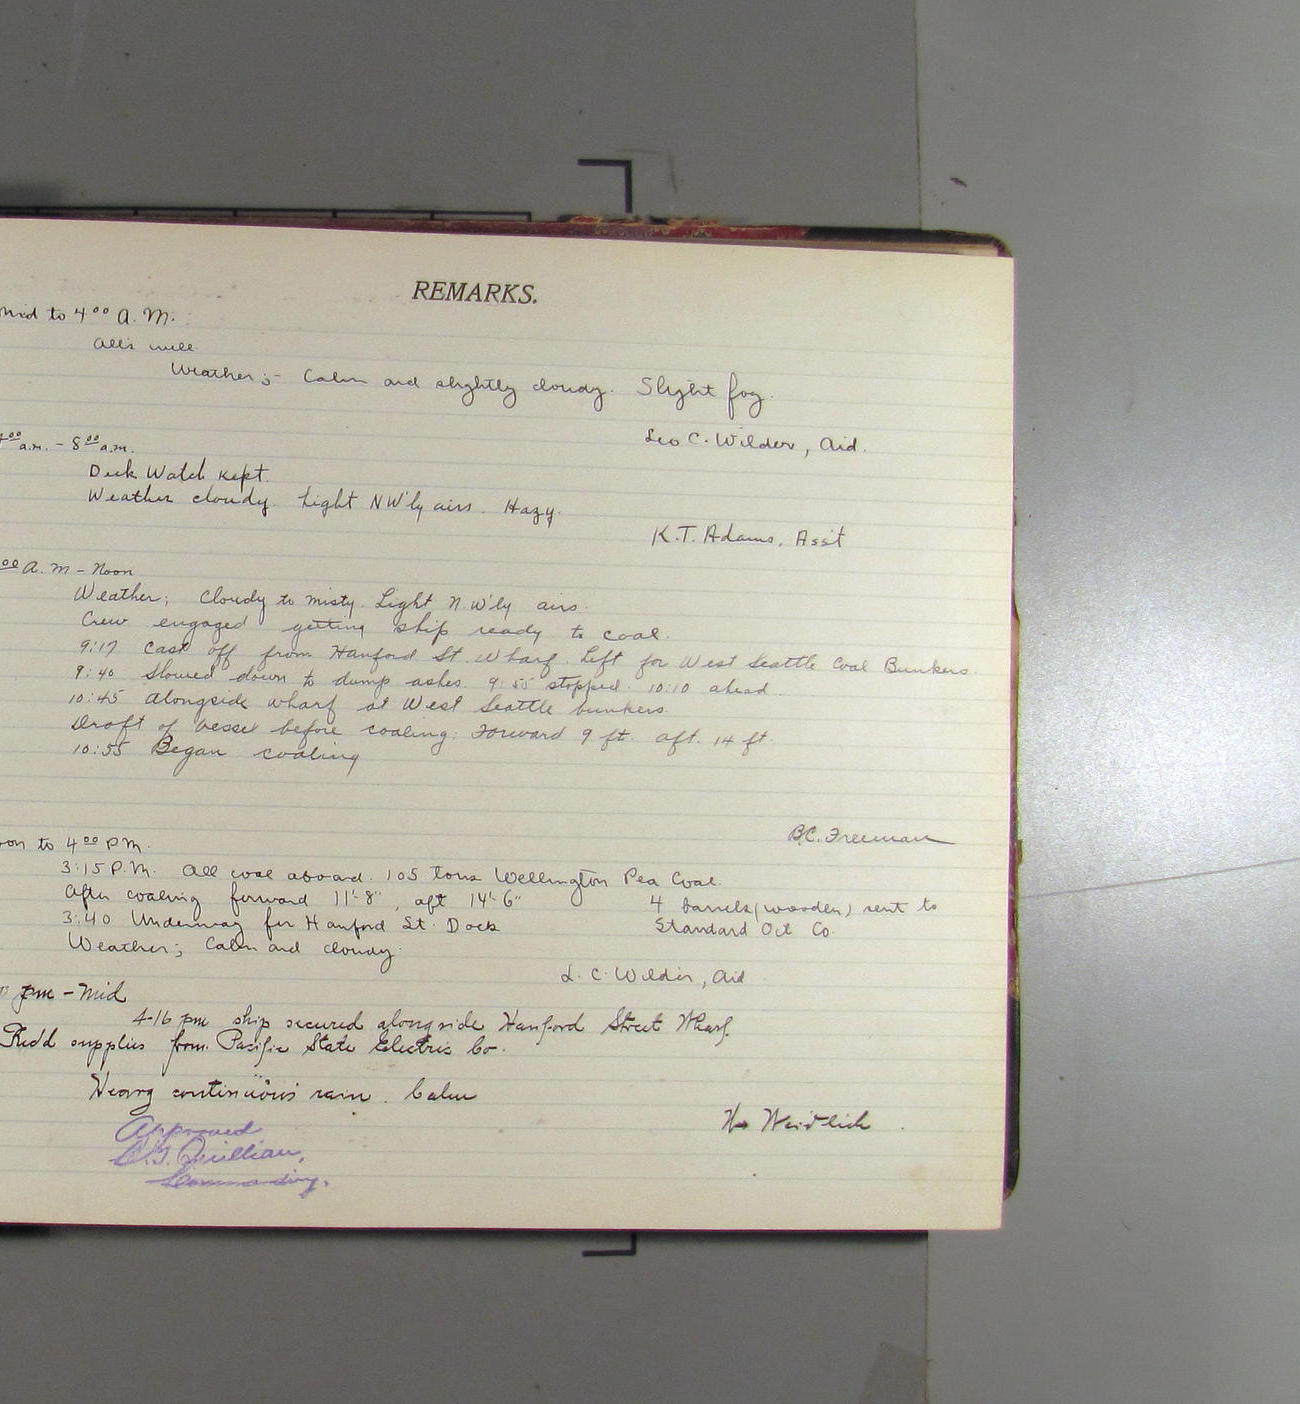 REMARKS.
Mid to 4⁰⁰ A.M.
All's well
Weather;- Calm and slightly cloudy. Slight fog.
Leo C. Wilder, Aid.
4⁰⁰ a.m. - 8⁰⁰ a.m.
Deck Watch kept.
Weather cloudy. Light NW'ly airs. Hazy.
K.T. Adams, Asst
⁰⁰ A.M - Noon
Weather; Cloudy to misty. Light N.W'ly airs.
Crew engaged getting ship ready to coal.
9:17 Cast off from Hanford St. Wharf. Left for West Seattle Coal Bunkers.
9:40 Slowed down to dump ashes. 9:55 stopped. 10:10 ahead.
10:45 Alongside wharf at West Seattle bunkers.
Draft of vessel before coaling: Forward 9 ft. aft. 14 ft.
10:55 Began coaling
B.C. Freeman
oon to 4⁰⁰ P.M.
3:15 P.M. All coal aboard. 105 tons Wellington Pea Coal.
After coaling forward 11'-8", aft 14'-6"
4 barrels (wooden) sent to
3:40 Underway for Hanford St. Dock
Standard Oil Co.
Weather; Calm and cloudy.
L. C. Wilder, Aid
pm - Mid
4-16 pm ship secured alongside Hanford Street Wharf.
Rec'd supplies from Pacific State Electric Co.
Heavy continuous rain. Calm
Weidlich
Approved
Quillian,
Commanding.